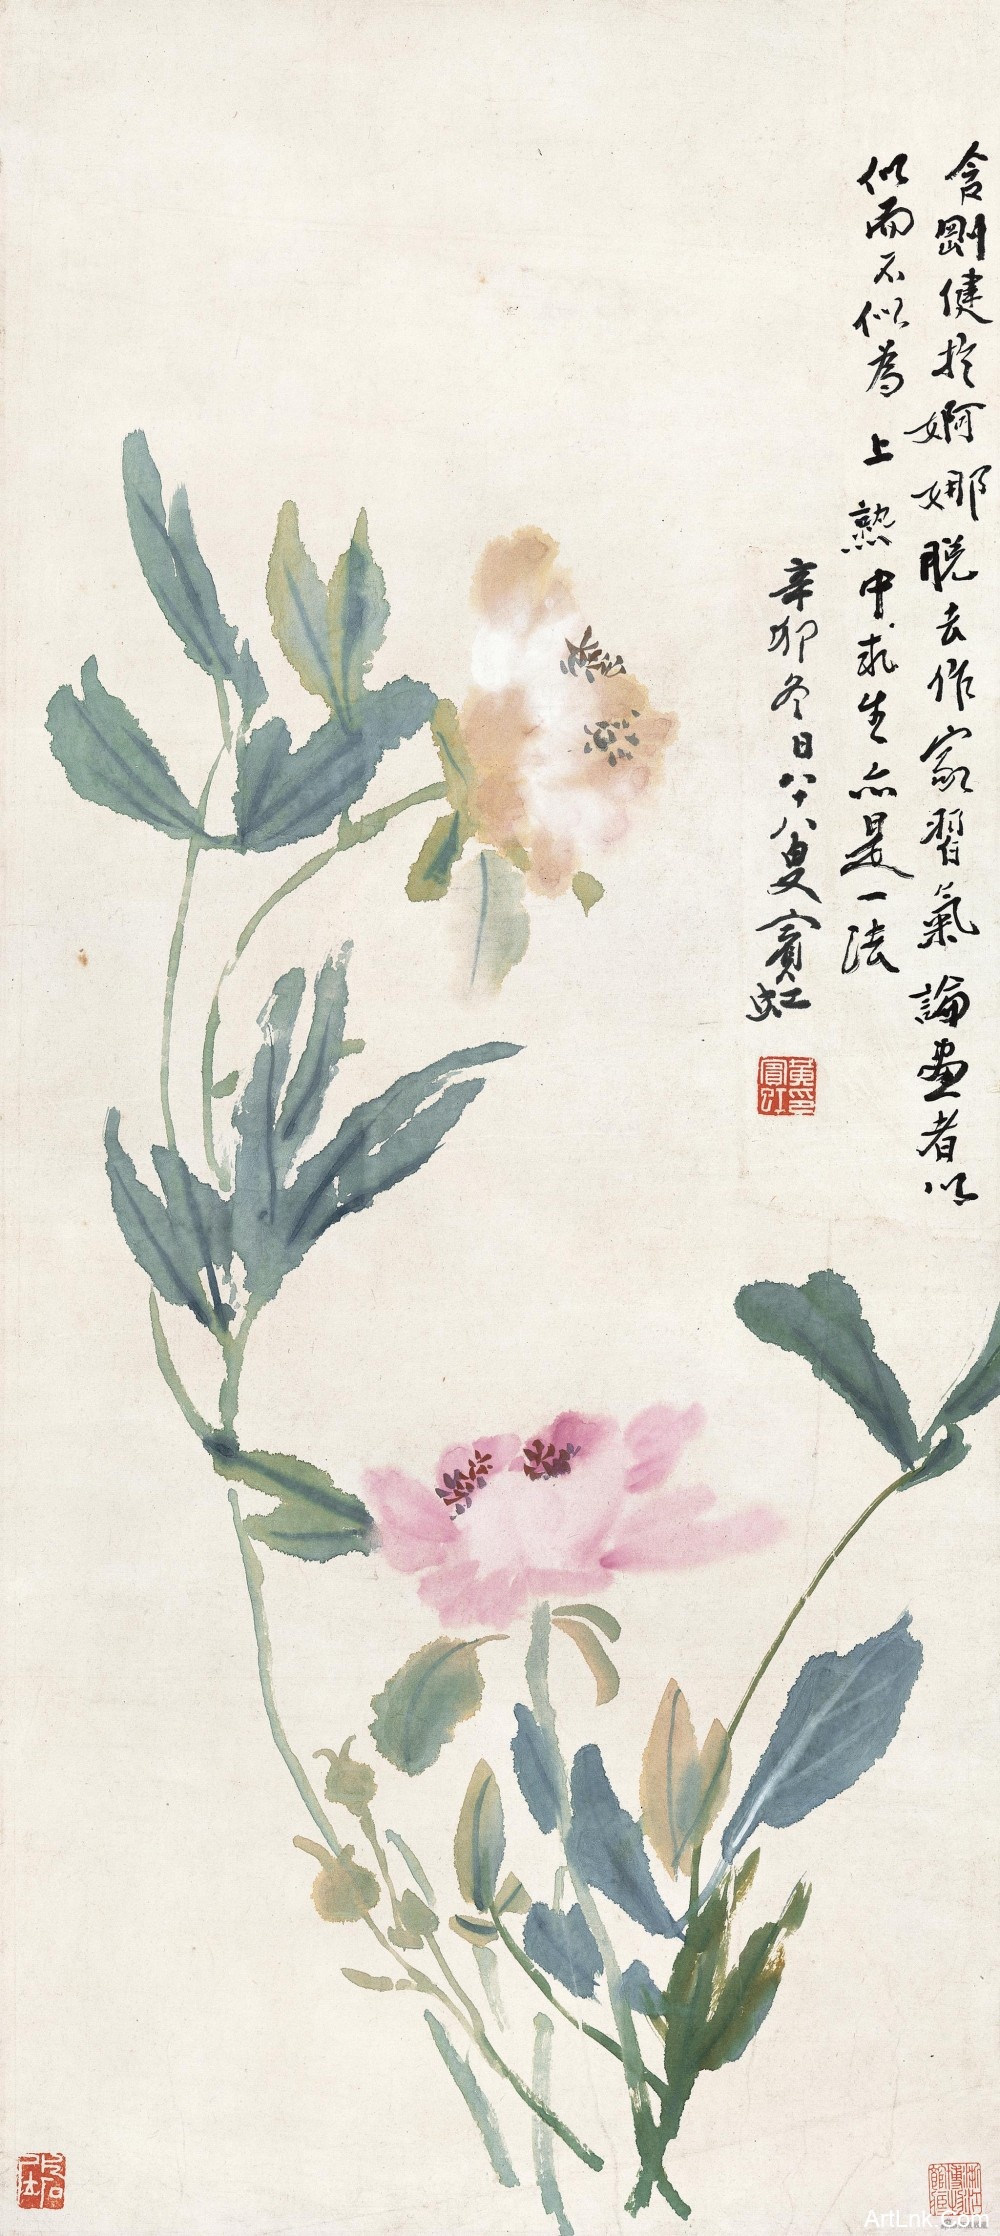 含剛健於婀娜脫去作家習氣論畫者以
似而不似為上熟中求生亦是一法
辛卯冬日八十八叟賓虹
黃賓虹印
ArtLnk.Com